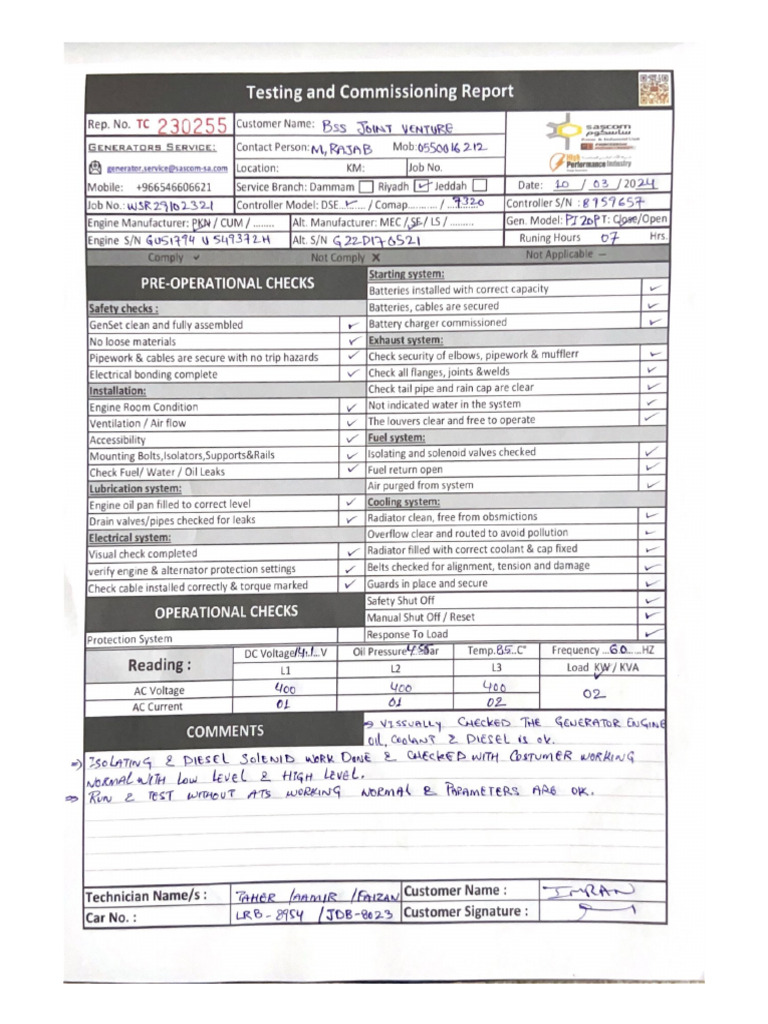 Testing and Commissioning Report
Rep. No. TC 230255
Customer Name: BSS JOINT VENTURE
sascom
ساسكوم
GENERATORS SERVICE:
Contact Person: M, RAJAB Mob: 0550016212
generator.service@sascom-sa.com
Location: KM: Job No.
High Performance Industry
Mobile: +966546606621
Service Branch: Dammam Riyadh ✓ Jeddah
Date: 10 / 03 / 2024
Job No.: WSR29102321
Controller Model: DSE ✓ / Comap / 7320
Controller S/N : 8759657
Engine Manufacturer: PKN / CUM / ........
Alt. Manufacturer: MEC / SE / LS / .........
Gen. Model: PI20P T: Close/Open
Engine S/N GU51794 U 549372H
Alt. S/N G22D176521
Runing Hours 07 Hrs.
Comply ✓ Not Comply X Not Applicable —
PRE-OPERATIONAL CHECKS
Safety checks :
GenSet clean and fully assembled ✓
No loose materials ✓
Pipework & cables are secure with no trip hazards ✓
Electrical bonding complete ✓
Installation:
Engine Room Condition ✓
Ventilation / Air flow ✓
Accessibility ✓
Mounting Bolts,Isolators,Supports&Rails ✓
Check Fuel/ Water / Oil Leaks ✓
Lubrication system:
Engine oil pan filled to correct level ✓
Drain valves/pipes checked for leaks ✓
Electrical system:
Visual check completed ✓
verify engine & alternator protection settings ✓
Check cable installed correctly & torque marked ✓
Starting system:
Batteries installed with correct capacity ✓
Batteries, cables are secured ✓
Battery charger commissioned ✓
Exhaust system:
Check security of elbows, pipework & mufflerr ✓
Check all flanges, joints &welds ✓
Check tail pipe and rain cap are clear ✓
Not indicated water in the system ✓
The louvers clear and free to operate ✓
Fuel system:
Isolating and solenoid valves checked ✓
Fuel return open ✓
Air purged from system ✓
Cooling system:
Radiator clean, free from obsmictions ✓
Overflow clear and routed to avoid pollution ✓
Radiator filled with correct coolant & cap fixed ✓
Belts checked for alignment, tension and damage ✓
Guards in place and secure ✓
OPERATIONAL CHECKS
Protection System
Safety Shut Off ✓
Manual Shut Off / Reset ✓
Response To Load ✓
Reading :
DC Voltage 14.1 V Oil Pressure 4.58 Bar Temp. 85 C° Frequency 60 HZ
L1 L2 L3 Load KW / KVA
AC Voltage 400 400 400 02
AC Current 01 01 02
COMMENTS
⇒ VISSUALLY CHECKED THE GENERATOR ENGINE
OIL, COOLANT & DIESEL IS OK.
⇒ ISOLATING & DIESEL SOLENID WORK DONE & CHECKED WITH COSTUMER WORKING
NORMAL WITH LOW LEVEL & HIGH LEVEL.
⇒ RUN & TEST WITHOUT ATS WORKING NORMAL & PARAMETERS ARE OK.
Technician Name/s : TAHER / AAMIR / FAIZAN
Customer Name : IMRAN
Car No. : LRB-8954 / JDB-8023
Customer Signature :